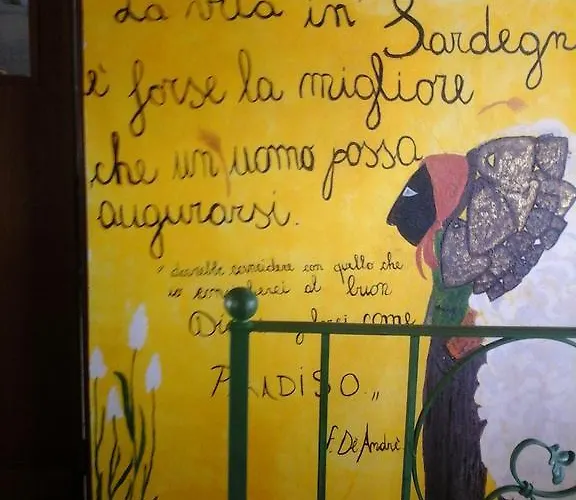 La vita in Sardegn
è forse la migliore
che un uomo possa
augurarsi.
" dovrebbe coincidere con quello che
io al buon
Di come
P ADISO „
F. De Andrè